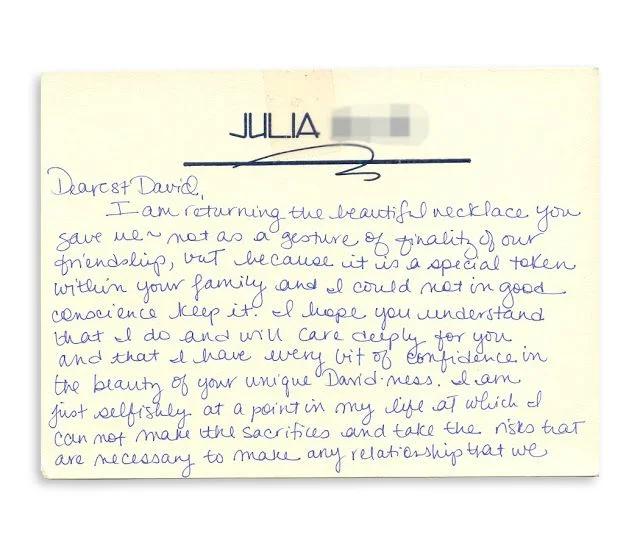 JULIA
Dearest David,
I am returning the beautiful necklace you
gave me ~ not as a gesture of finality of our
friendship, but because it is a special token
within your family and I could not in good
conscience keep it. I hope you understand
that I do and will care deeply for you
and that I have every bit of confidence in
the beauty of your unique David-ness. I am
just selfishly at a point in my life at which I
can not make the sacrifices and take the risks that
are necessary to make any relationship that we